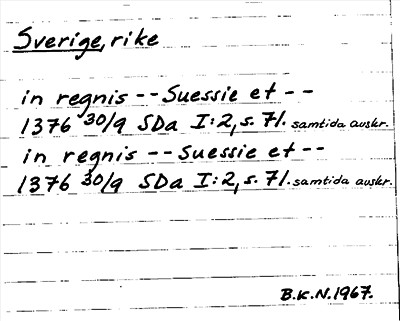 Sverige, rike
in regnis -- Suessie et --
1376 30/9 SDa I:2, s. 71. samtida avskr.
in regnis -- Suessie et --
1376 30/9 SDa I:2, s. 71. samtida avskr.
B.K.N. 1967.